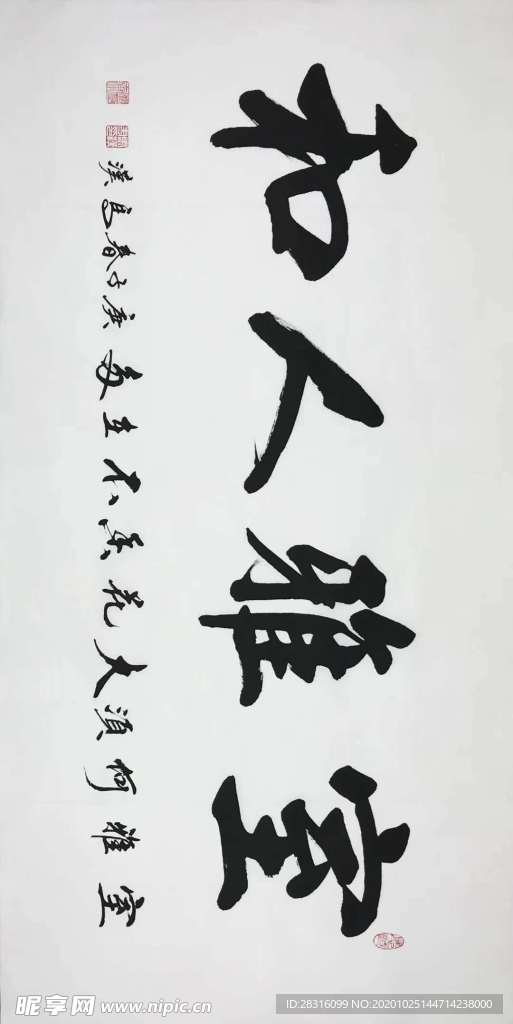 室雅人和
室雅何須大花香不在多庚子春漢
昵图网 www.nipic.cn
ID:28316099 NO:20201025144714238000